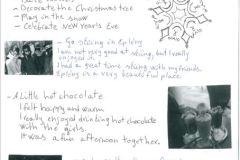 - Decorate the Christmas tree
- Play in the snow
- Celebrate NEW YEAR'S EVE
- Go skiing in
I am not very good at skiing, but I really
enjoyed it
I had a great time skiing with my friends.
is a very beautiful place.
- A little hot chocolate
I felt happy and warm
I really enjoyed drinking hot chocolate
with the girls.
It was a fun afternoon together.